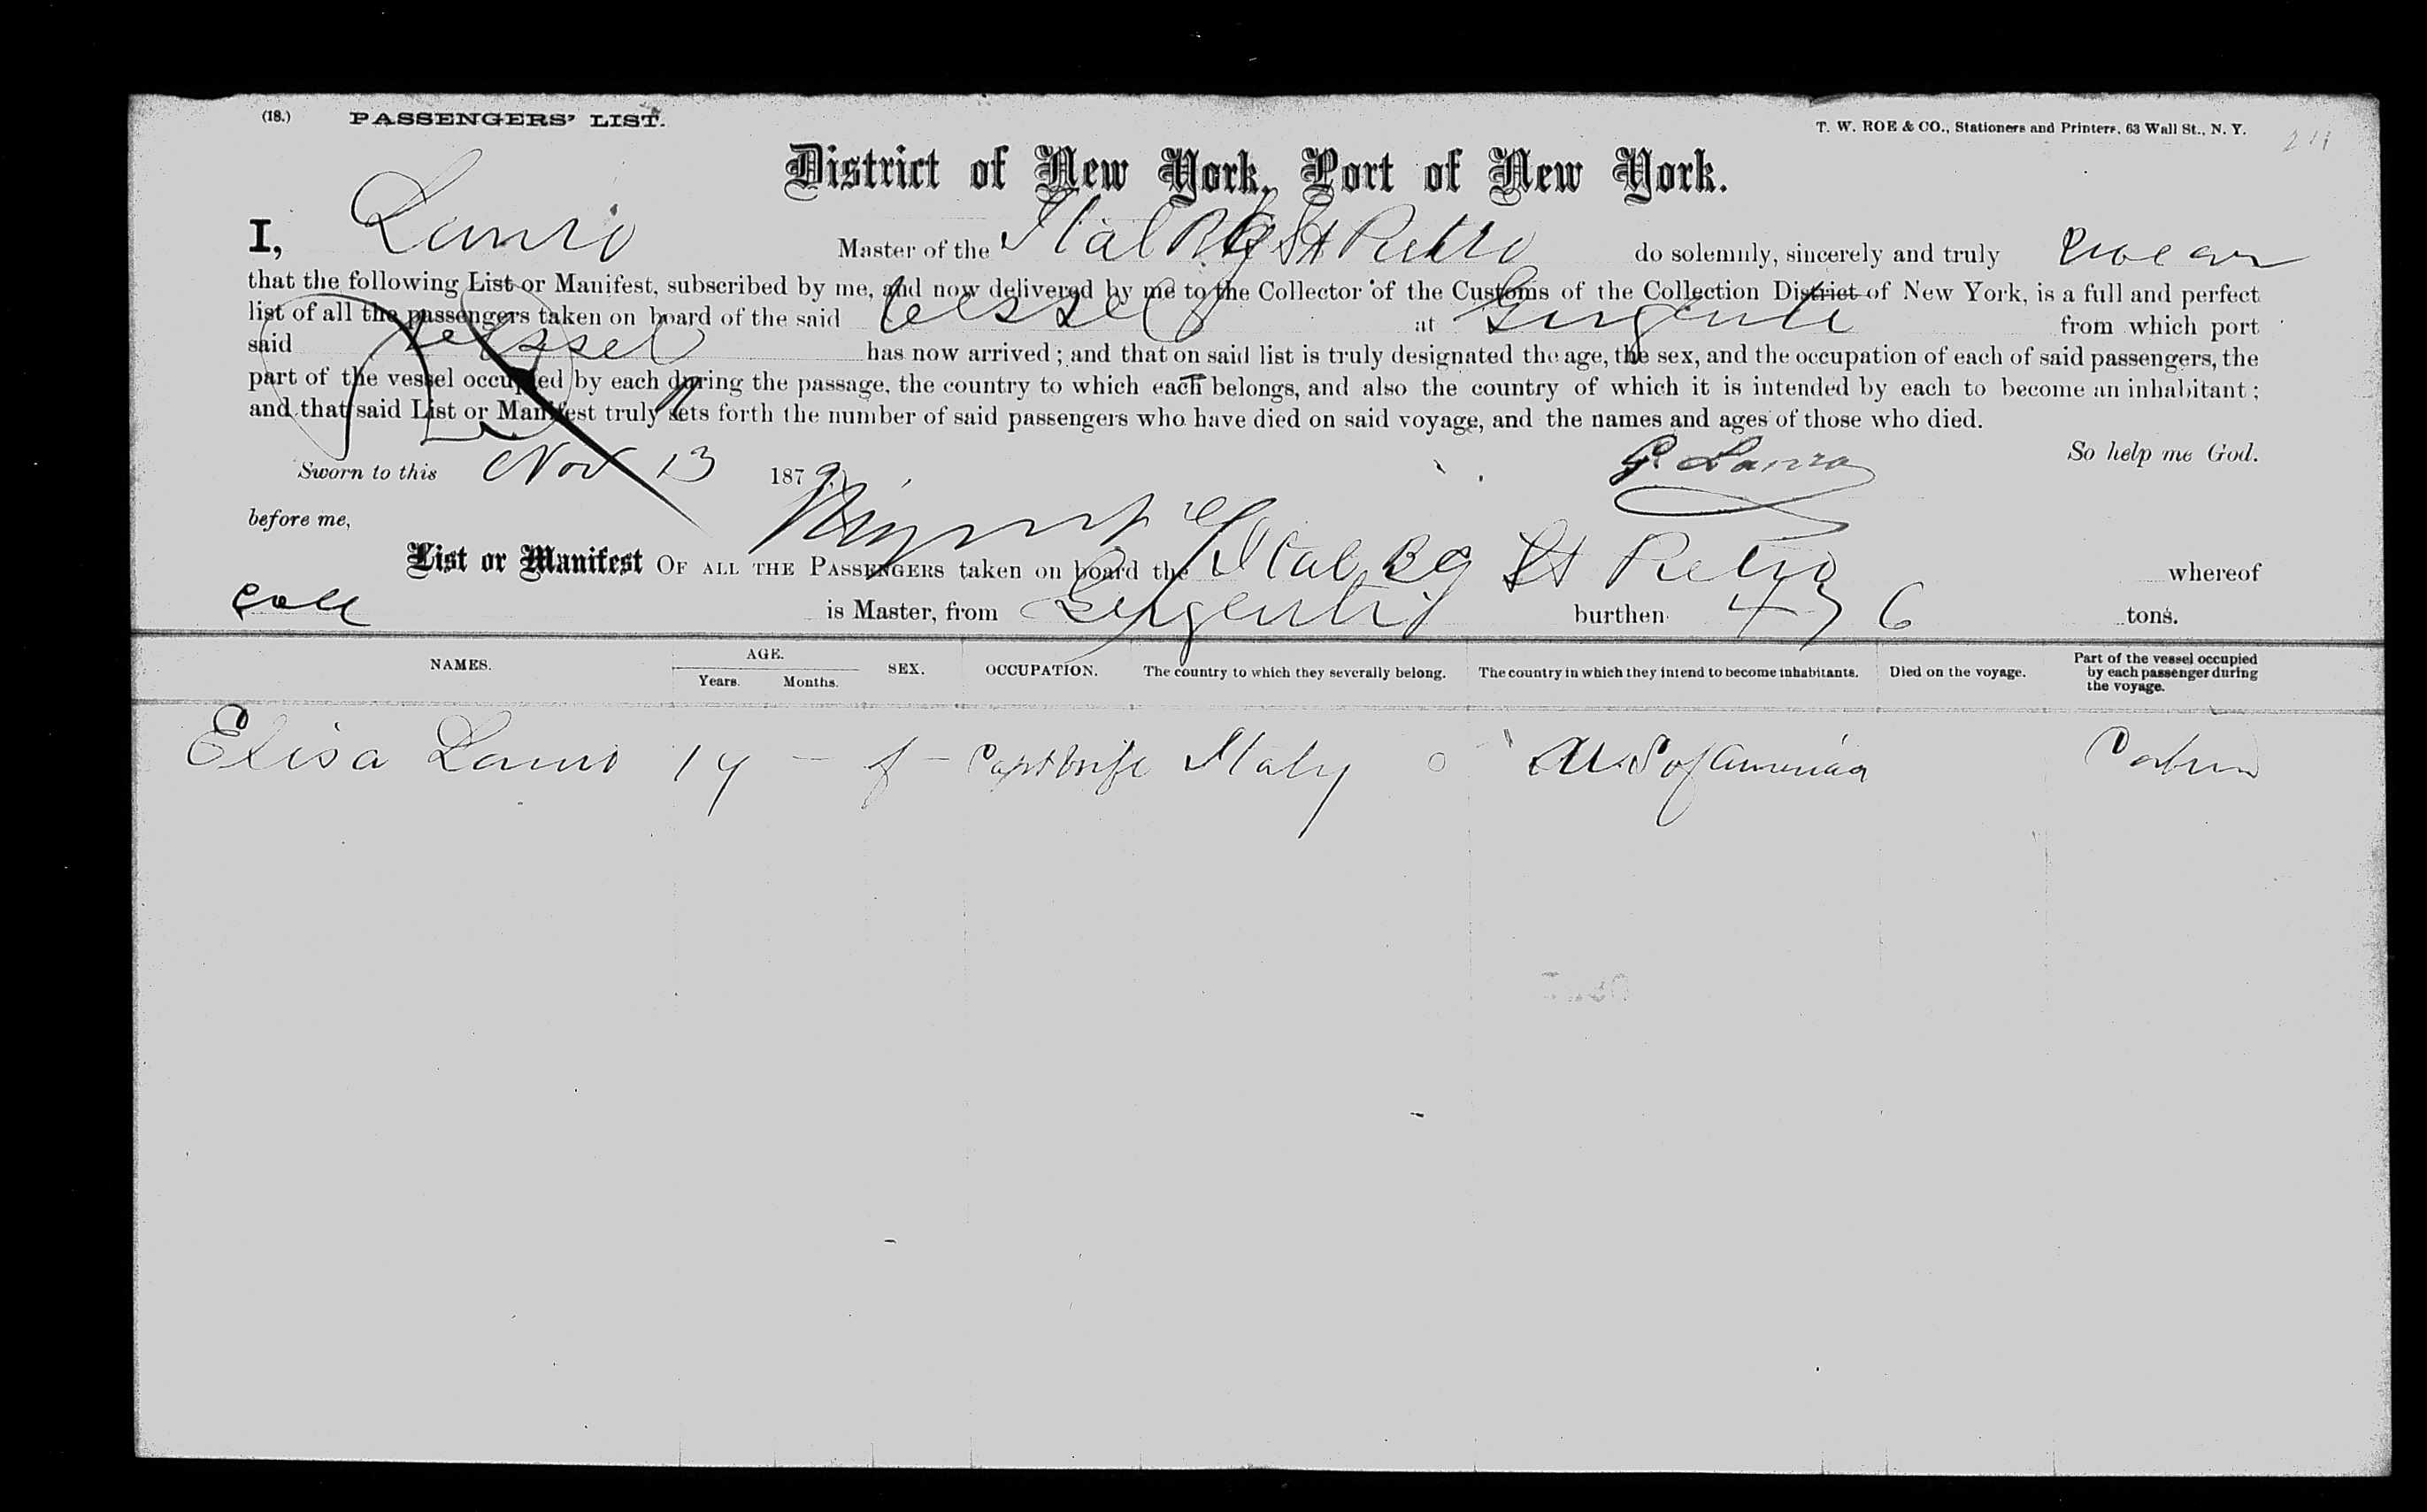 (18.) PASSENGERS' LIST.
T. W. ROE & CO., Stationers and Printers, 63 Wall St., N. Y.
District of New York, Port of New York.
I, Lauro Master of the Ital Bg St Pietro do solemnly, sincerely and truly swear
that the following List or Manifest, subscribed by me, and now delivered by me to the Collector of the Customs of the Collection District of New York, is a full and perfect
list of all the passengers taken on board of the said vessel at Girgenti from which port
said vessel has now arrived; and that on said list is truly designated the age, the sex, and the occupation of each of said passengers, the
part of the vessel occupied by each during the passage, the country to which each belongs, and also the country of which it is intended by each to become an inhabitant;
and that said List or Manifest truly sets forth the number of said passengers who have died on said voyage, and the names and ages of those who died.
So help me God.
Sworn to this Nov 13 1879
before me,
List or Manifest OF ALL THE PASSENGERS taken on board the Ital Bg St Pietro whereof
is Master, from Girgenti burthen 436 tons.
NAMES. AGE. Years. Months. SEX. OCCUPATION. The country to which they severally belong. The country in which they intend to become inhabitants. Died on the voyage. Part of the vessel occupied by each passenger during the voyage.
Elisa Lauro 19 — f — Capt wife Italy U S of America Cabin